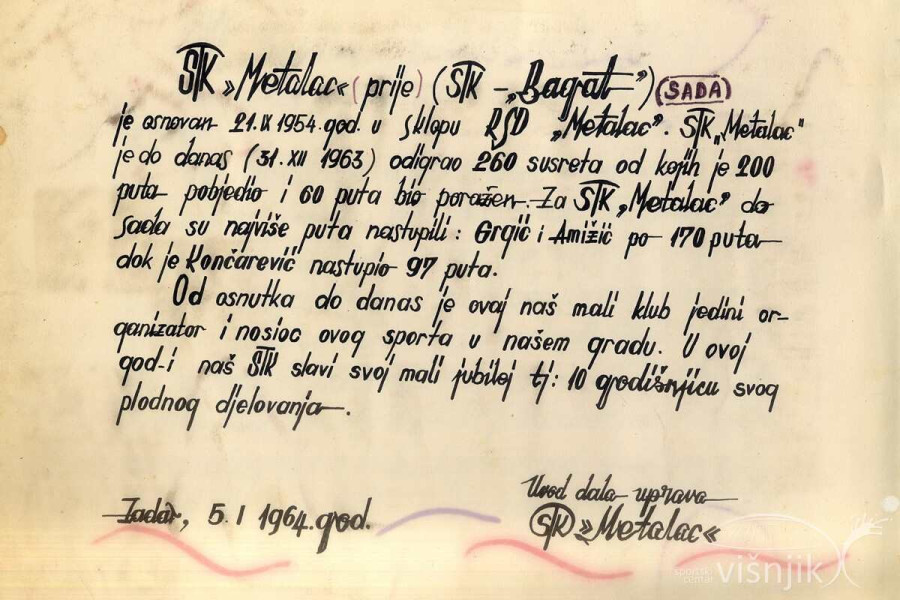 STK »Metalac« (prije) (STK - „Bagat") (SADA)
je osnovan 21.IX 1954.god. u sklopu RSD „Metalac". STK „Metalac"
je do danas (31.XII 1963) odigrao 260 susreta od kojih je 200
puta pobjedio i 60 puta bio poražen. Za STK „Metalac" do
sada su najviše puta nastupili: Grgić i Amižić po 170 puta
dok je Končarević nastupio 97 puta.
Od osnutka do danas je ovaj naš mali klub jedini or-
ganizator i nosioc ovog sporta u našem gradu. U ovoj
god-i naš STK slavi svoj mali jubilej tj: 10 godišnjicu svog
plodnog djelovanja.
Zadar, 5.I 1964.god.
Uvod dala uprava
STK »Metalac«
sportski
centar
višnjik